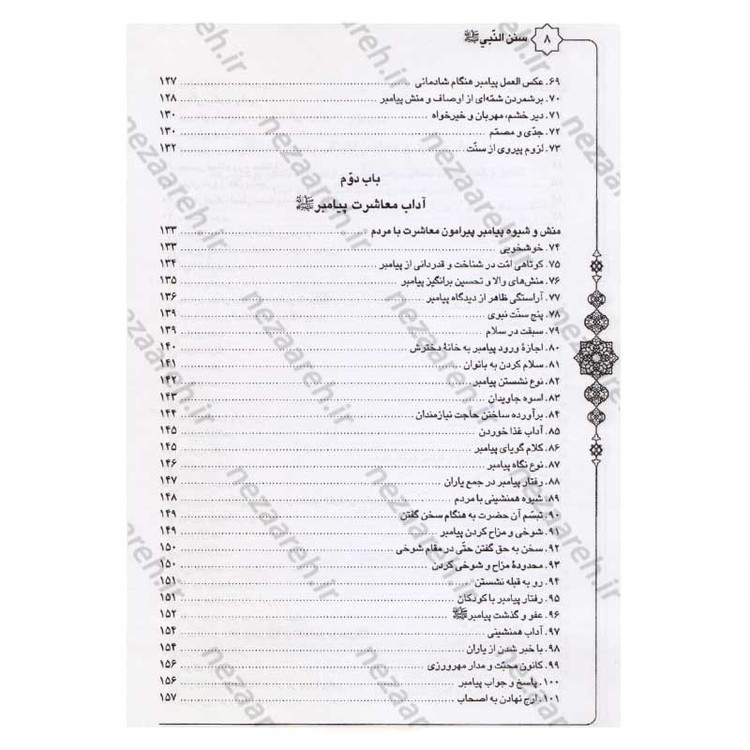 ۸ سنن النّبي ﷺ
۶۹. عکس العمل پیامبر هنگام شادمانی ........ ۱۲۷
۷۰. برشمردن شمّه‌ای از اوصاف و منش پیامبر ........ ۱۲۸
۷۱. دیر خشم، مهربان و خیرخواه ........ ۱۳۰
۷۲. جدّی و مصمّم ........ ۱۳۰
۷۳. لزوم پیروی از سنّت ........ ۱۳۲
باب دوّم
آداب معاشرت پیامبر ﷺ
منش و شیوه پیامبر پیرامون معاشرت با مردم ........ ۱۳۳
۷۴. خوشخویی ........ ۱۳۳
۷۵. کوتاهی امّت در شناخت و قدردانی از پیامبر ........ ۱۳۴
۷۶. منش‌های والا و تحسین برانگیز پیامبر ........ ۱۳۵
۷۷. آراستگی ظاهر از دیدگاه پیامبر ........ ۱۳۶
۷۸. پنج سنّت نبوی ........ ۱۳۹
۷۹. سبقت در سلام ........ ۱۳۹
۸۰. اجازهٔ ورود پیامبر به خانهٔ دخترش ........ ۱۴۰
۸۱. سلام کردن به بانوان ........ ۱۴۱
۸۲. نوع نشستن پیامبر ........ ۱۴۲
۸۳. اسوه جاویدان ........ ۱۴۳
۸۴. برآورده ساختن حاجت نیازمندان ........ ۱۴۴
۸۵. آداب غذا خوردن ........ ۱۴۵
۸۶. کلام گویای پیامبر ........ ۱۴۵
۸۷. نوع نگاه پیامبر ........ ۱۴۶
۸۸. رفتار پیامبر در جمع یاران ........ ۱۴۷
۸۹. شیوه همنشینی با مردم ........ ۱۴۸
۹۰. تبسّم آن حضرت به هنگام سخن گفتن ........ ۱۴۹
۹۱. شوخی و مزاح کردن پیامبر ........ ۱۴۹
۹۲. سخن به حق گفتن حتّی در مقام شوخی ........ ۱۵۰
۹۳. محدودهٔ مزاح و شوخی کردن ........ ۱۵۰
۹۴. رو به قبله نشستن ........ ۱۵۱
۹۵. رفتار پیامبر با کودکان ........ ۱۵۱
۹۶. عفو و گذشت پیامبر ﷺ ........ ۱۵۲
۹۷. آداب همنشینی ........ ۱۵۴
۹۸. با خبر شدن از یاران ........ ۱۵۴
۹۹. کانون محبّت و مدار مهرورزی ........ ۱۵۶
۱۰۰. پاسخ و جواب پیامبر ........ ۱۵۶
۱۰۱. ارج نهادن به اصحاب ........ ۱۵۷
nezaareh.ir